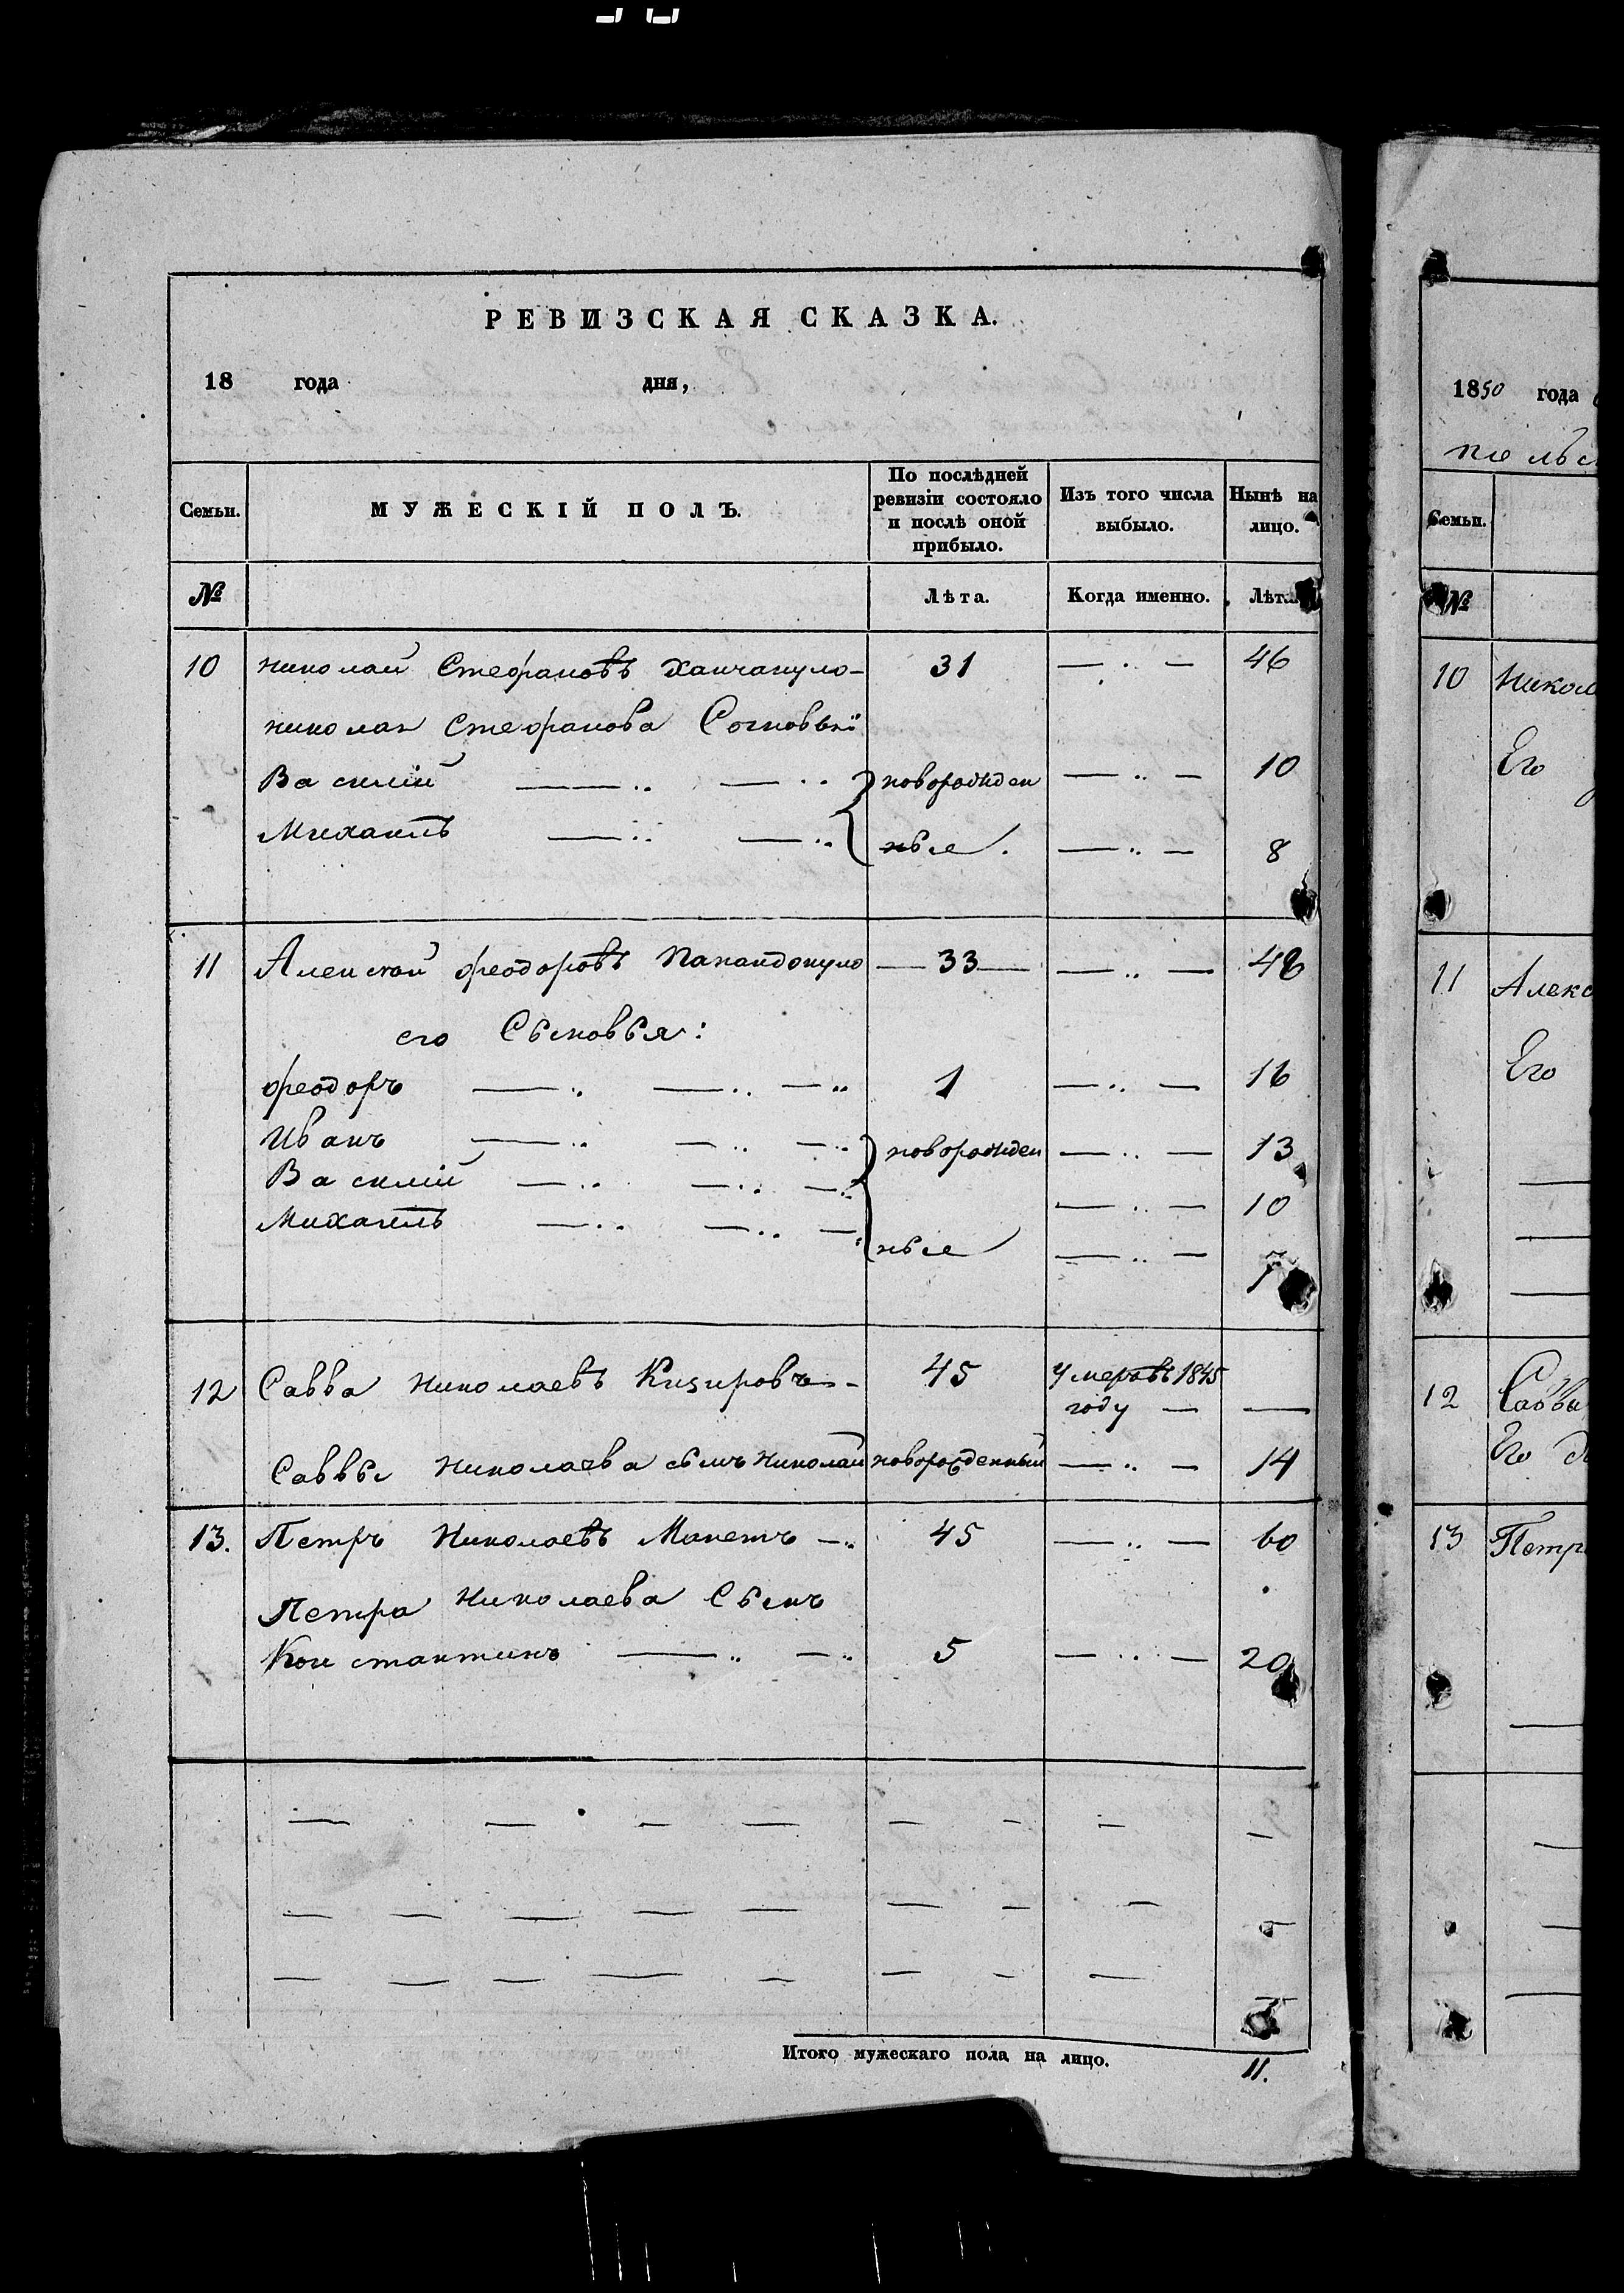 РЕВИЗСКАЯ СКАЗКА.
18 года дня,
Семьи. МУЖЕСКІЙ ПОЛЪ. По послѣдней ревизіи состояло и послѣ оной прибыло. Изъ того числа выбыло. Нынѣ на лицо.
№ Лѣта. Когда именно. Лѣта
10 Николай Стефановъ Ханчапуло- 31 — . — 46
Николая Стефанова Сосновьи
Василій — .. — .. новорожден — .. — 10
Михаилъ — .. — .. ные. — .. — 8
11 Алексѣй Феодоровъ Папандопуло — 33 — — .. — 48
его Сыновья:
Феодоръ — .. — .. — .. 1 — .. — 16
Иванъ — .. — .. — .. новорожден — .. — 13
Василій — .. — .. — .. — .. — 10
Михаилъ — .. — .. — ные — .. — 7
12 Савва Николаевъ Кизировъ - 45 Умеръ въ 1845
году — —
Саввы Николаева сынъ Николай новорожденный — .. — 14
13. Петръ Николаевъ Манетъ — .. 45 — .. — 60
Петра Николаева Сынъ
Константинъ — .. — .. 5 — .. — 20
Итого мужескаго пола на лицо. 11.
1850 года
Семьи.
№
10 Никол
Его
11 Алекс
Его
12 Савва
Его
13 Петр